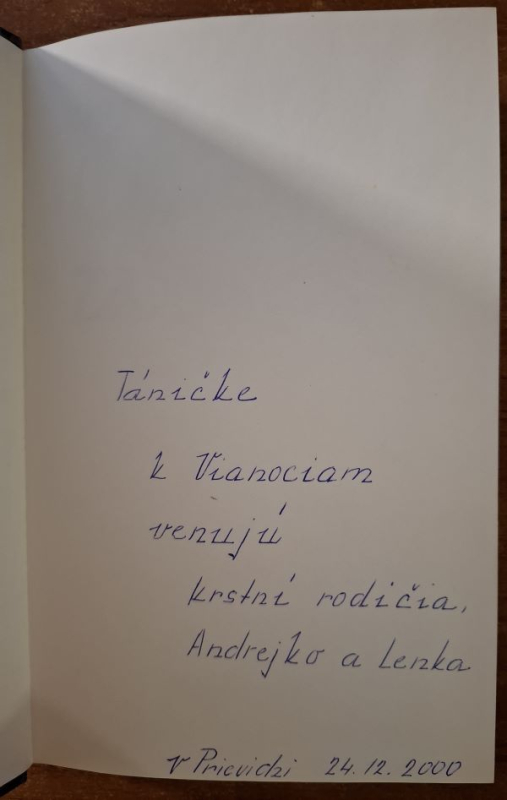 Táničke
k Vianociam
venujú
krstní rodičia,
Andrejko a Lenka
v Prievidzi 24.12.2000